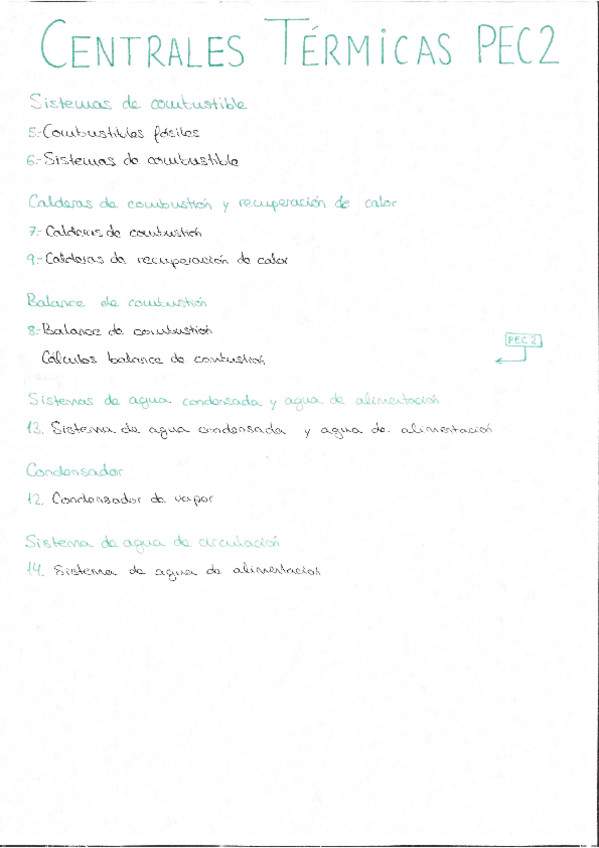 CENTRALES TÉRMICAS PEC2
Sistemas de combustible
5.- Combustibles fósiles
6.- Sistemas de combustible
Calderas de combustión y recuperación de calor
7.- Calderas de combustión
9.- Calderas de recuperación de calor
Balance de combustión
8.- Balance de combustión
PEC 2
Cálculos balance de combustión
Sistemas de agua condensada y agua de alimentación
13. Sistema de agua condensada y agua de alimentación
Condensador
12. Condensador de vapor
Sistema de agua de circulación
14. Sistema de agua de alimentación